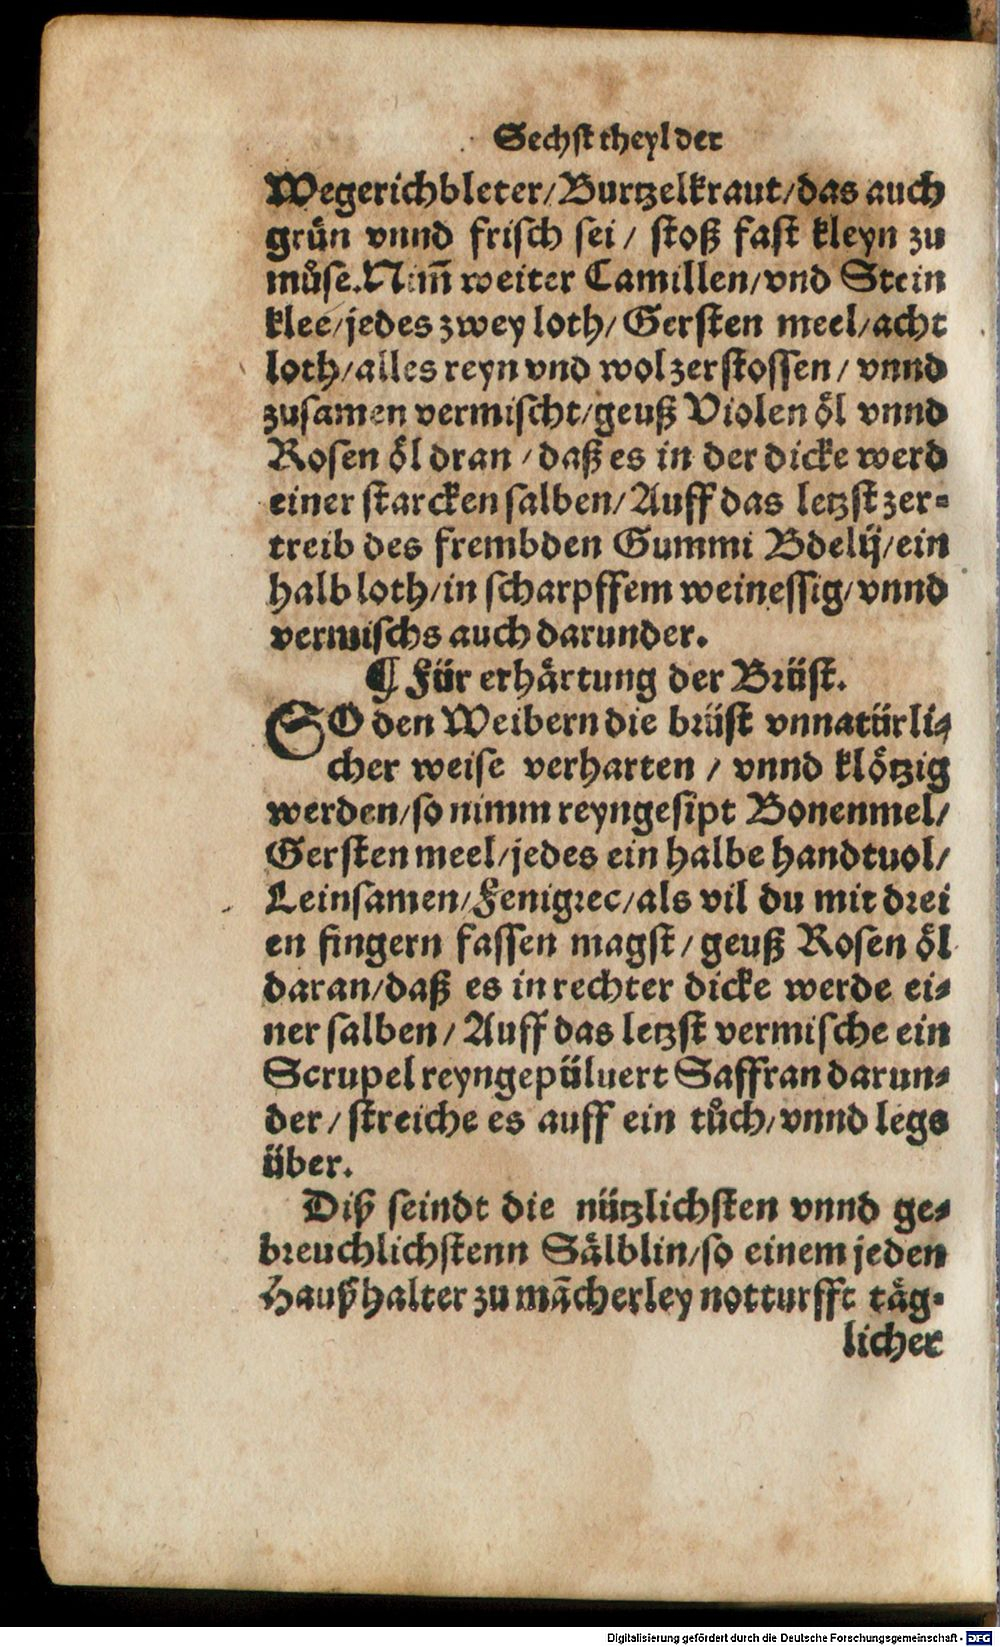 Sechst theyl der
Wegerichbleter/Burtzelkraut/das auch
grün vnnd frisch sei/ stoß fast kleyn zu
můse.Nim̃ weiter Camillen/vnd Stein
klee/jedes zwey loth/Gersten meel/acht
loth/alles reyn vnd wol zerstossen/ vnnd
zusamen vermischt/geuß Violen öl vnnd
Rosen öl dran/daß es in der dicke werd
einer starcken salben/Auff das letzst zer-
treib des frembden Gummi Bdelij/ein
halb loth/in scharpffem weinessig/vnnd
vermischs auch darunder.
¶ Für erhärtung der Brüst.
SO den Weibern die brüst vnnatürli-
cher weise verharten / vnnd klötzig
werden/so nimm reyngesipt Bonenmel/
Gersten meel/jedes ein halbe handtuol/
Leinsamen/Fenigrec/als vil du mit drei
en fingern fassen magst/geuß Rosen öl
daran/daß es in rechter dicke werde ei-
ner salben/Auff das letzst vermische ein
Scrupel reyngepüluert Saffran darun-
der/streiche es auff ein tůch/vnnd legs
über.
Diß seindt die nützlichsten vnnd ge-
breuchlichstenn Sälblin/so einem jeden
Haußhalter zu mãcherley notturfft täg-
licher
Digitalisierung gefördert durch die Deutsche Forschungsgemeinschaft - DFG